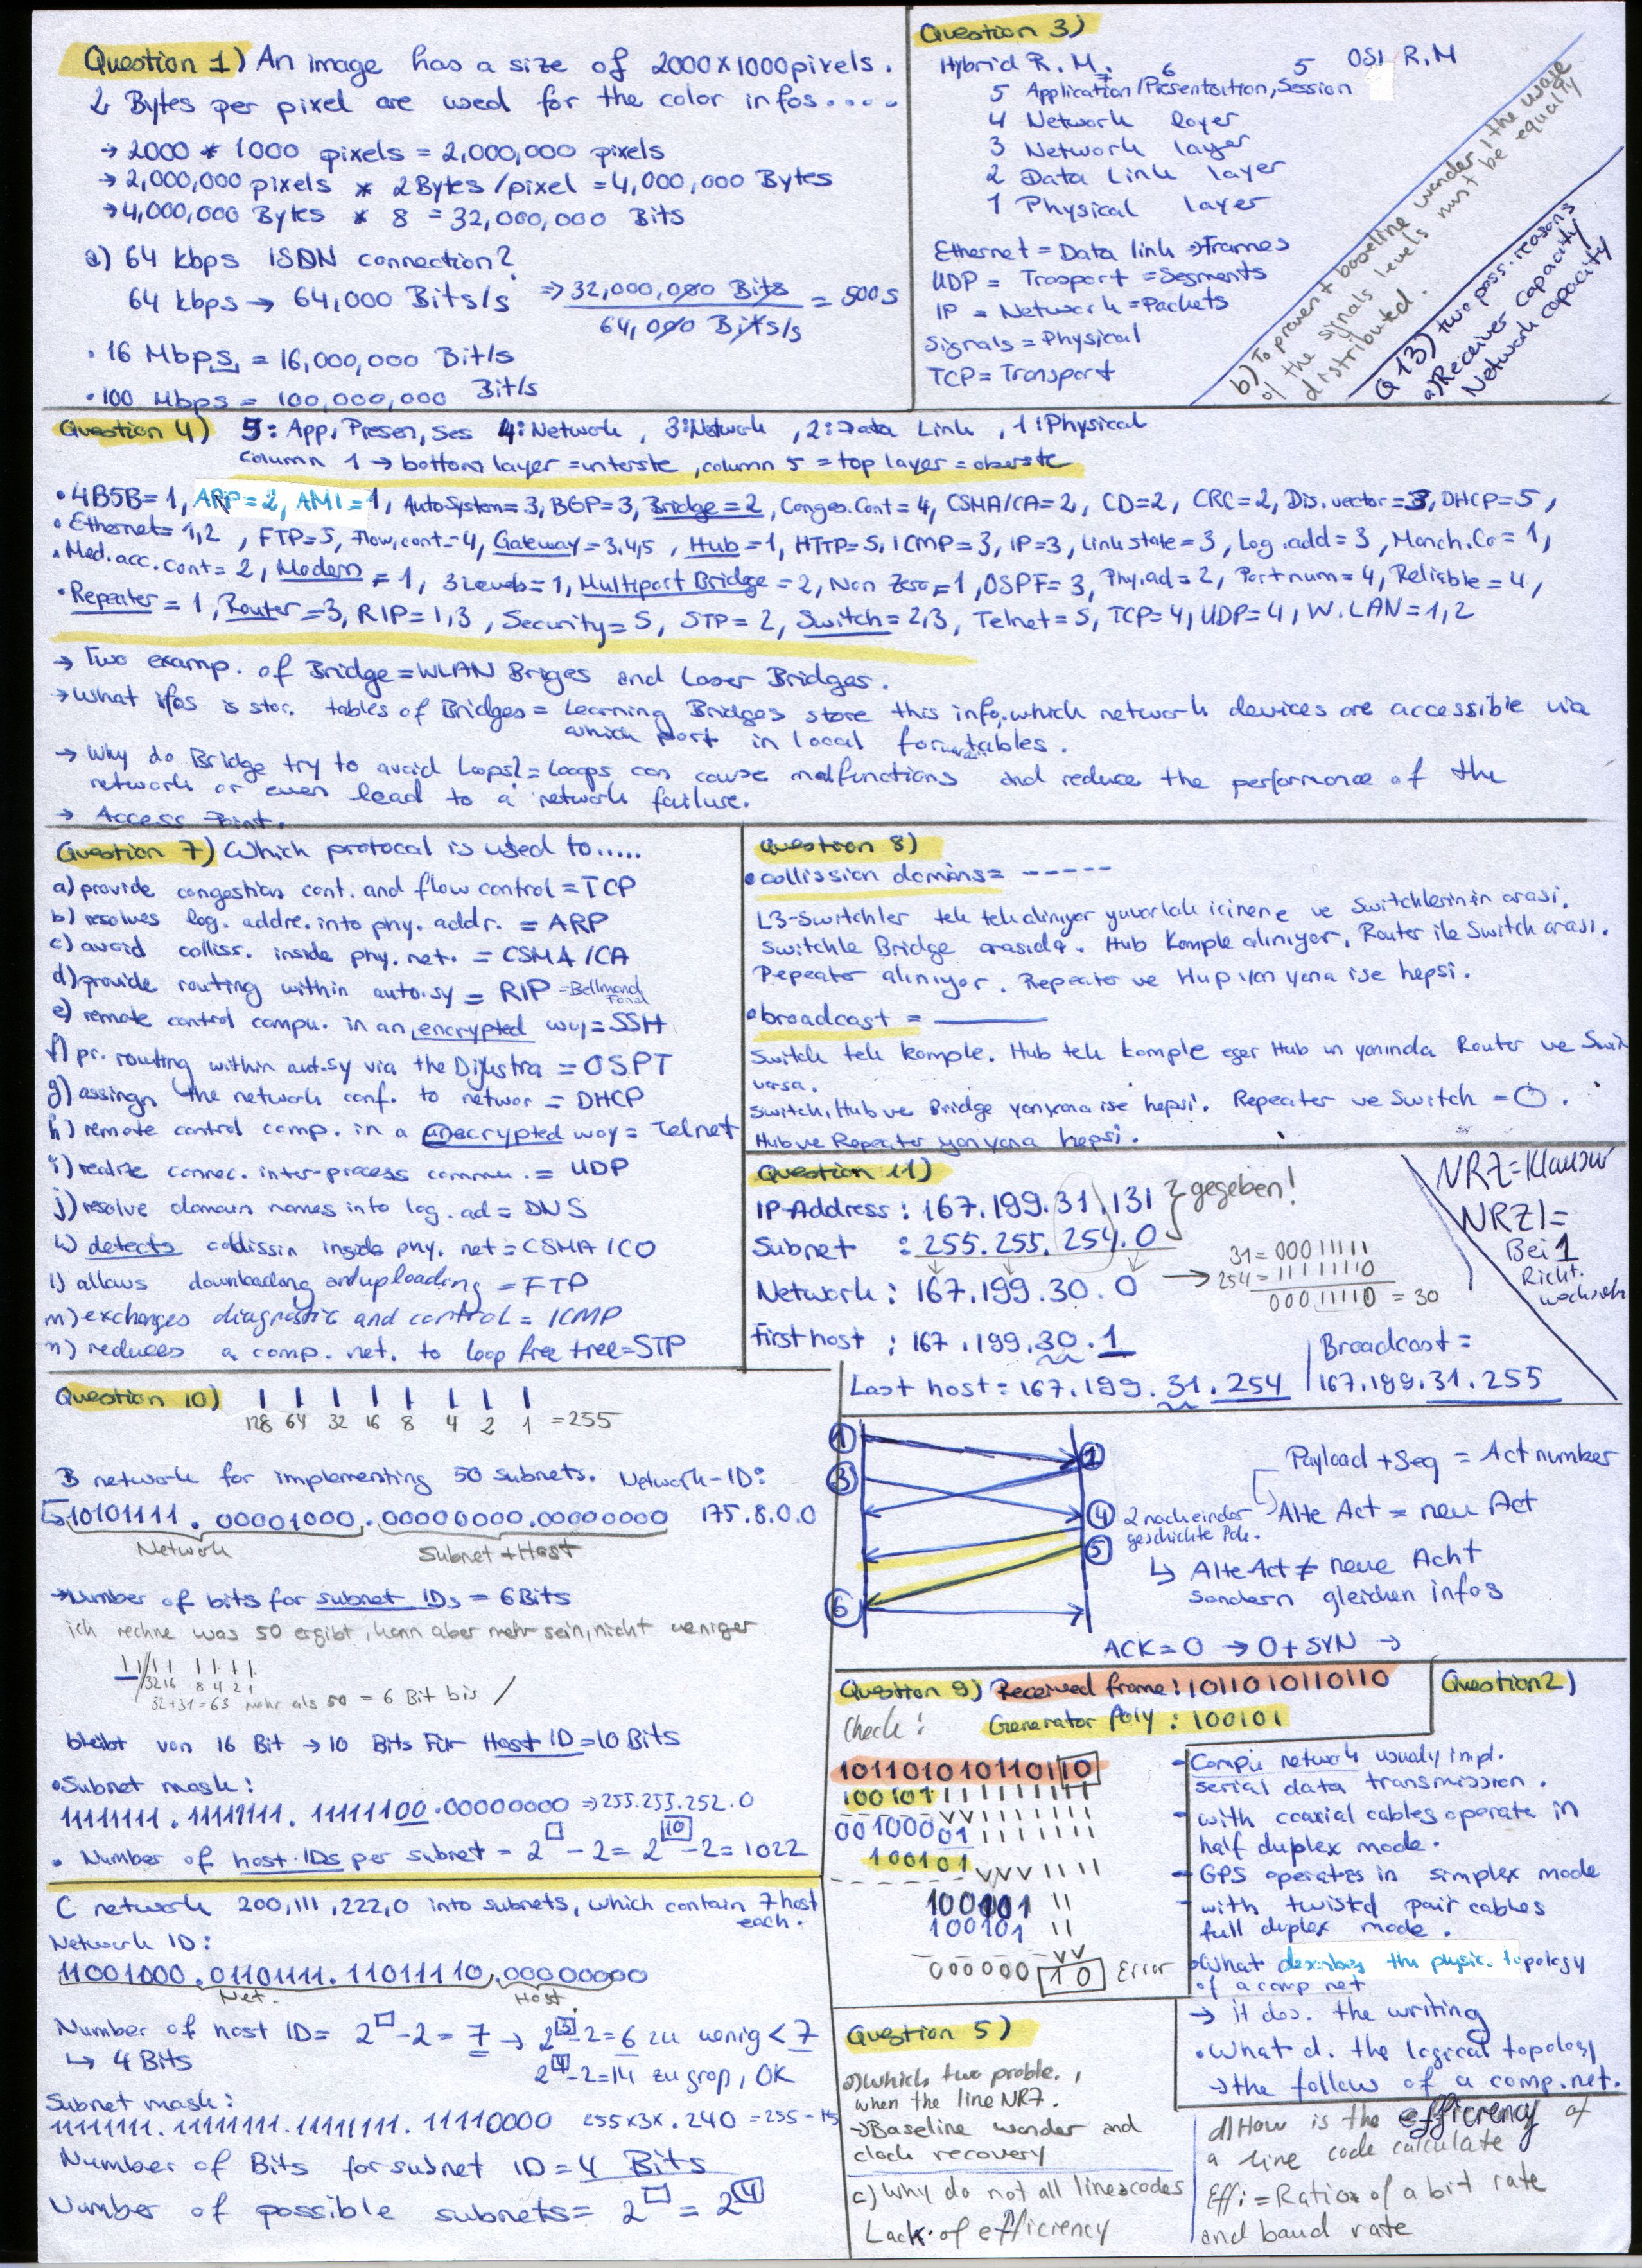 Question 1) An image has a size of 2000x1000pixels.
2 Bytes per pixel are used for the color infos....
→ 2000 * 1000 pixels = 2,000,000 pixels
→ 2,000,000 pixels * 2Bytes/pixel = 4,000,000 Bytes
→ 4,000,000 Bytes * 8 = 32,000,000 Bits
a) 64 kbps ISDN connection?
64 kbps → 64,000 Bits/s ⇒ 32,000,000 Bits / 64,000 Bits/s = 500s
• 16 Mbps = 16,000,000 Bit/s
• 100 Mbps = 100,000,000 Bit/s
Question 3)
Hybrid R.M. 7 6 5 OSI R.M
5 Application/Presentation, Session
4 Network layer
3 Network layer
2 Data Link layer
1 Physical layer
Ethernet = Data link → Frames
UDP = Trasport = Segments
IP = Network = Packets
Signals = Physical
TCP = Transport
b) To prevent baseline wander, the usage
of the signals levels must be equality
distributed.
Q 13) two poss. reasons
a) Receiver capacity
Network capacity
Question 4) 5: App, Presen, Ses 4: Network, 3: Network, 2: Data Link, 1: Physical
column 1 → bottom layer = unterste, column 5 = top layer = oberste
• 4B5B=1, ARP=2, AMI=1, AutoSystem=3, BGP=3, Bridge=2, Conges.Cont=4, CSMA/CA=2, CD=2, CRC=2, Dis.vector=3, DHCP=5,
• Ethernet=1,2, FTP=5, Flow.cont=4, Gateway=3,4,5, Hub=1, HTTP=5, ICMP=3, IP=3, Linkstate=3, Log.add=3, Manch.Co=1,
• Med.acc.cont=2, Modem=1, 3 Leveb=1, Multiport Bridge=2, Non Zero=1, OSPF=3, Phy.ad=2, Portnum=4, Reliable=4,
• Repeater=1, Router=3, RIP=1,3, Security=5, STP=2, Switch=2,3, Telnet=5, TCP=4, UDP=4, W.LAN=1,2
→ Two examp. of Bridge = WLAN Briges and Laser Bridges.
→ What ifos is stor. tables of Bridges = Learning Bridges store this info, which network devices are accessible via
which port in local forw. tables.
→ Why do Bridge try to avoid Loops? = Loops can cause malfunctions and reduce the performance of the
network or even lead to a network failure.
→ Access Point.
Question 7) Which protocal is used to.....
a) provide congestion cont. and flow control = TCP
b) resolves log. addre. into phy. addr. = ARP
c) avoid colliss. inside phy. net. = CSMA/CA
d) provide routing within auto.sy = RIP = Bellmand Ford
e) remote control compu. in an encrypted way = SSH
f) pr. routing within aut.sy via the Dijkstra = OSPT
g) assingn the network conf. to networ = DHCP
h) remote control comp. in a unecrypted way = Telnet
i) realize connec. inter-process commu. = UDP
j) resolve domain names into log. ad = DNS
k) detects collissin inside phy. net = CSMA/CO
l) allows downloadang and uploading = FTP
m) exchanges diagnostic and control = ICMP
n) reduces a comp. net. to loop free tree = STP
Question 8)
• collission domains = ------
L3-Switchler tek tek aliniyor yuvarlak icinene ve Switchlerinin arasi.
Switchle Bridge arasida. Hub Komple aliniyor, Router ile Switch arasi.
Pepeater aliniyor. Repeater ve Hup yan yana ise hepsi.
• broadcast = ______
Switch tek komple. Hub tek komple eger Hub in yaninda Router ve Swi
varsa.
Switch, Hub ve Bridge yanyana ise hepsi. Repeater ve Switch = O.
Hub ve Repeater yanyana hepsi.
Question 11)
IP-Address : 167.199.31.131 } gegeben!
Subnet : 255.255.254.0
Network : 167.199.30.0 → 31 = 00011111
254 = 11111110
00011110 = 30
First host : 167.199.30.1
Last host : 167.199.31.254
Broadcast =
167.199.31.255
NRZ = Klausur
NRZI =
Bei 1
Richt.
wechseln
Question 10) 128 64 32 16 8 4 2 1 = 255
B network for implementing 50 subnets. Network-ID:
10101111.00001000.00000000.00000000 175.8.0.0
Network Subnet + Host
→ Number of bits for subnet IDs = 6 Bits
ich rechne was 50 ergibt, kann aber mehr sein, nicht weniger
32 16 8 4 2 1
32+31=63 mehr als 50 = 6 Bit bis /
bleibt von 16 Bit → 10 Bits Für Host ID = 10 Bits
• Subnet mask:
11111111.11111111.11111100.00000000 ⇒ 255.255.252.0
• Number of host-IDs per subnet = 2^□ - 2 = 2^10 - 2 = 1022
C network 200,111,222,0 into subnets, which contain 7 host
each.
Network ID:
11001000.0110111.11011110.00000000
Net. Host
Number of host ID = 2^□ - 2 = 7 → 2^3 - 2 = 6 zu wenig < 7
↳ 4 Bits 2^4 - 2 = 14 zu groß, OK
Subnet mask:
11111111.11111111.11111111.11110000 255x3x.240 = 255-15
Number of Bits for subnet ID = 4 Bits
Number of possible subnets = 2^□ = 2^4
1 2 3 4 5 6
Payload + Seq = Act number
Alte Act = neu Act
2 nacheinder
geschickte Pak.
↳ Alte Act ≠ neue Acht
sondern gleichen infos
ACK = 0 → 0 + SYN →
Question 9) Received frame: 1011010110110
Check: Generator Poly : 100101
101101010110110
100101
00100001
100101
100101
100101
000000 10 Error
Question 2)
- Compu network usualy impl.
serial data transmission.
- with coaxial cables operate in
half duplex mode.
- GPS operates in simplex mode
- with twistd pair cables
full duplex mode.
• What describes the physic. topology
of a comp net
→ it des. the writing
• What d. the logical topology
→ the follow of a comp.net.
Question 5)
a) which two proble.,
when the line NRZ.
→ Baseline wander and
clock recovery
c) Why do not all linescodes
Lack of efficiency
d) How is the efficrency of
a line code calculate
Effi = Ration of a bit rate
and baud rate